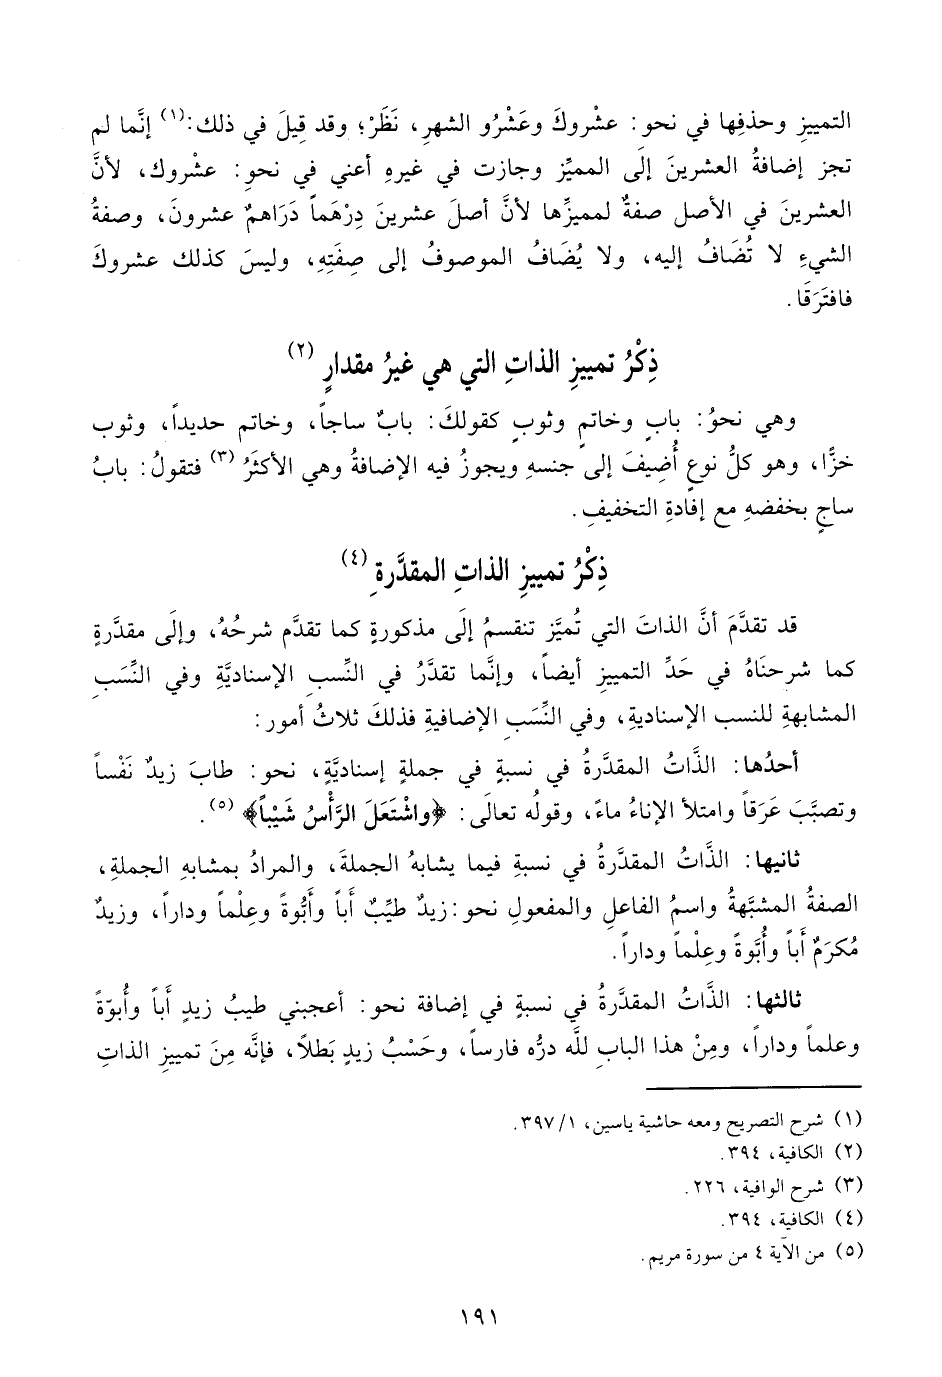 التمييز وحذفِها في نحو: عشْروكَ وعَشْرُو الشهرِ، نَظَرْ؛ وقد قيلَ في ذلك:(١) إنَّما لم
تجز إضافةُ العشرينَ إلَى المميِّز وجازت في غيرهِ أعني في نحوِ: عشْروك، لأنَّ
العشرينَ في الأصل صفةٌ لمميزِّها لأنَّ أصلَ عشرينَ دِرْهَماً دَرَاهمٌ عشرونَ، وصفةُ
الشيءِ لا تُضَافُ إليه، ولا يُضَافُ الموصوفُ إلى صِفَتِهِ، وليسَ كذلك عشروكَ
فافتَرَقَا.
ذِكْرُ تمييزِ الذاتِ التي هي غيرُ مقدارٍ (٢)
وهي نحوُ: بابٍ وخاتمٍ وثوبٍ كقولكَ: بابٌ ساجاً، وخاتم حديداً، وثوب
خزًّا، وهو كلُّ نوعٍ أُضِيفَ إلى جنسهِ ويجوزُ فيه الإضافةُ وهي الأكثَرُ (٣) فتقولُ: بابُ
ساجٍ بخفضهِ مع إفادةِ التخفيفِ.
ذِكْرُ تمييزِ الذاتِ المقدَّرةِ (٤)
قد تقدَّمَ أنَّ الذاتَ التي تُميَّز تنقسمُ إلَى مذكورةٍ كما تقدَّم شرحُهُ، وإلَى مقدَّرةٍ
كما شرحنَاهُ في حَدِّ التمييزِ أيضاً، وإنَّما تقدَّرُ في النِّسبِ الإسناديَّةِ وفي النِّسَبِ
المشابهةِ للنسب الإسناديةِ، وفي النِّسَبِ الإضافيةِ فذلكَ ثلاثُ أمور:
أحدُها: الذَّاتُ المقدَّرةُ في نسبةٍ في جملةٍ إسناديَّةٍ، نحو: طابَ زيدٌ نَفْساً
وتصبَّبَ عَرَقاً وامتلأ الإناءُ ماءً، وقولُه تعالَى: ﴿واشْتَعَلَ الرَّأْسُ شَيْباً﴾ (٥).
ثانيها: الذَّاتُ المقدَّرةُ في نسبةٍ فيما يشابهُ الجملةَ، والمرادُ بمشابهِ الجملةِ،
الصفةُ المشبَّهةُ واسمُ الفاعلِ والمفعولِ نحو: زيدٌ طيِّبٌ أَباً وأُبُّوةً وعِلْماً وداراً، وزيدٌ
مُكرَمٌ أَباً وأُبَّوةً وعِلْماً وداراً.
ثالثها: الذَّاتُ المقدَّرةُ في نسبةٍ في إضافة نحو: أعجبني طيبُ زيدٍ أَباً وأُبوّةً
وعلماً وداراً، ومِنْ هذا البابِ للَّه درُّه فارساً، وحَسْبُ زيدٍ بَطلاً، فإنَّه مِنَ تمييزِ الذاتِ
(١) شرح التصريح ومعه حاشية ياسين، ٣٩٧/١.
(٢) الكافية، ٣٩٤.
(٣) شرح الوافية، ٢٢٦.
(٤) الكافية، ٣٩٤.
(٥) من الآية ٤ من سورة مريم.
١٩١